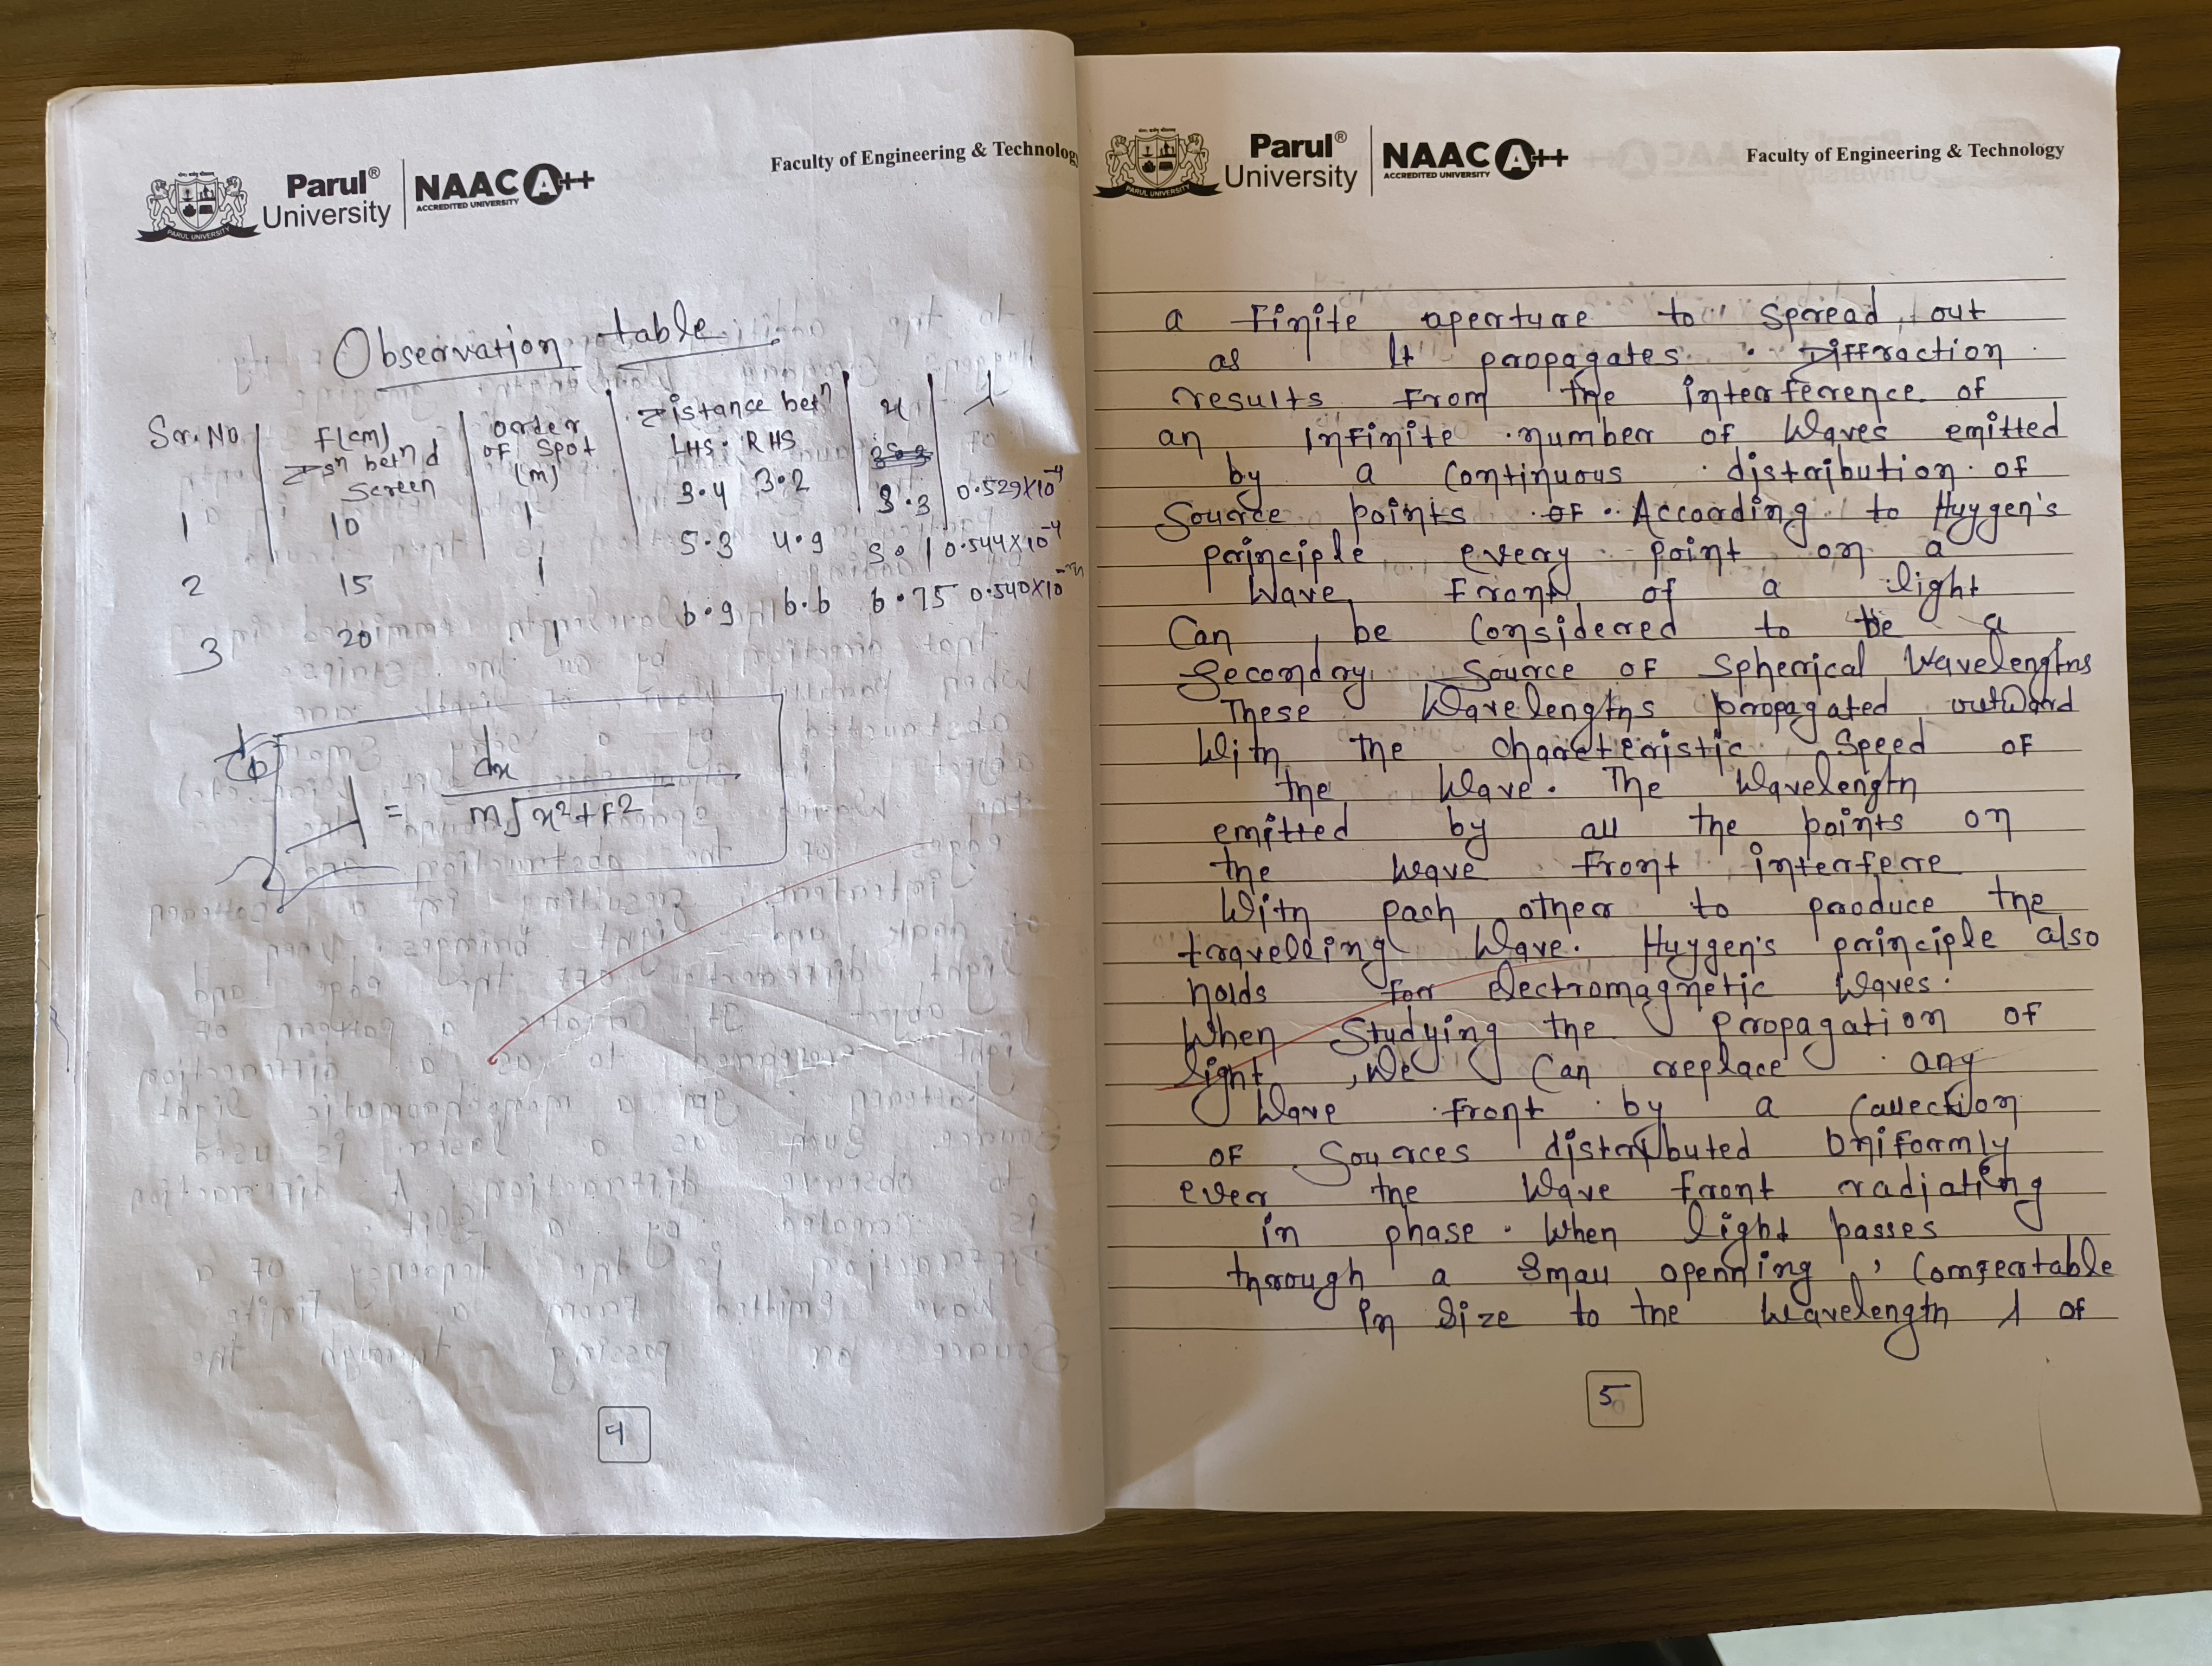 Parul®
University
NAAC A++
ACCREDITED UNIVERSITY
PARUL UNIVERSITY
Faculty of Engineering & Technology
Observation table
Sr. No | F(cm) Dsn betn d screen | order of spot (m) | Distance betn LHS. RHS | x | λ
1 10 1 3.4 3.2 3.3 0.529×10-4
2 15 1 5.3 4.9 5.1 0.544×10-4
3 20 1 6.9 6.6 6.75 0.540×10
λ = dx
m√x²+F²
4
Parul®
University
NAAC A++
ACCREDITED UNIVERSITY
PARUL UNIVERSITY
Faculty of Engineering & Technology
a Finite aperture to spread out
as It propagates. Diffraction
results From the interference of
an infinite number of waves emitted
by a continuous distribution of
Source points of. According to Huygen's
principle every point on a
wave Front of a light
Can be considered to be a
secondary source of spherical wavelengths
These wavelengths propagated outward
With the characteristic speed of
the wave. The wavelength
emitted by all the points on
the wave front interfere
With each other to produce the
travelling wave. Huygen's principle also
holds for electromagnetic waves.
When Studying the propagation of
light, We Can replace any
Wave front by a collection
of Sources distributed Uniformly
ever the wave front radiating
in phase. When light passes
through a small openning, Comfertable
in size to the wavelength λ of
5